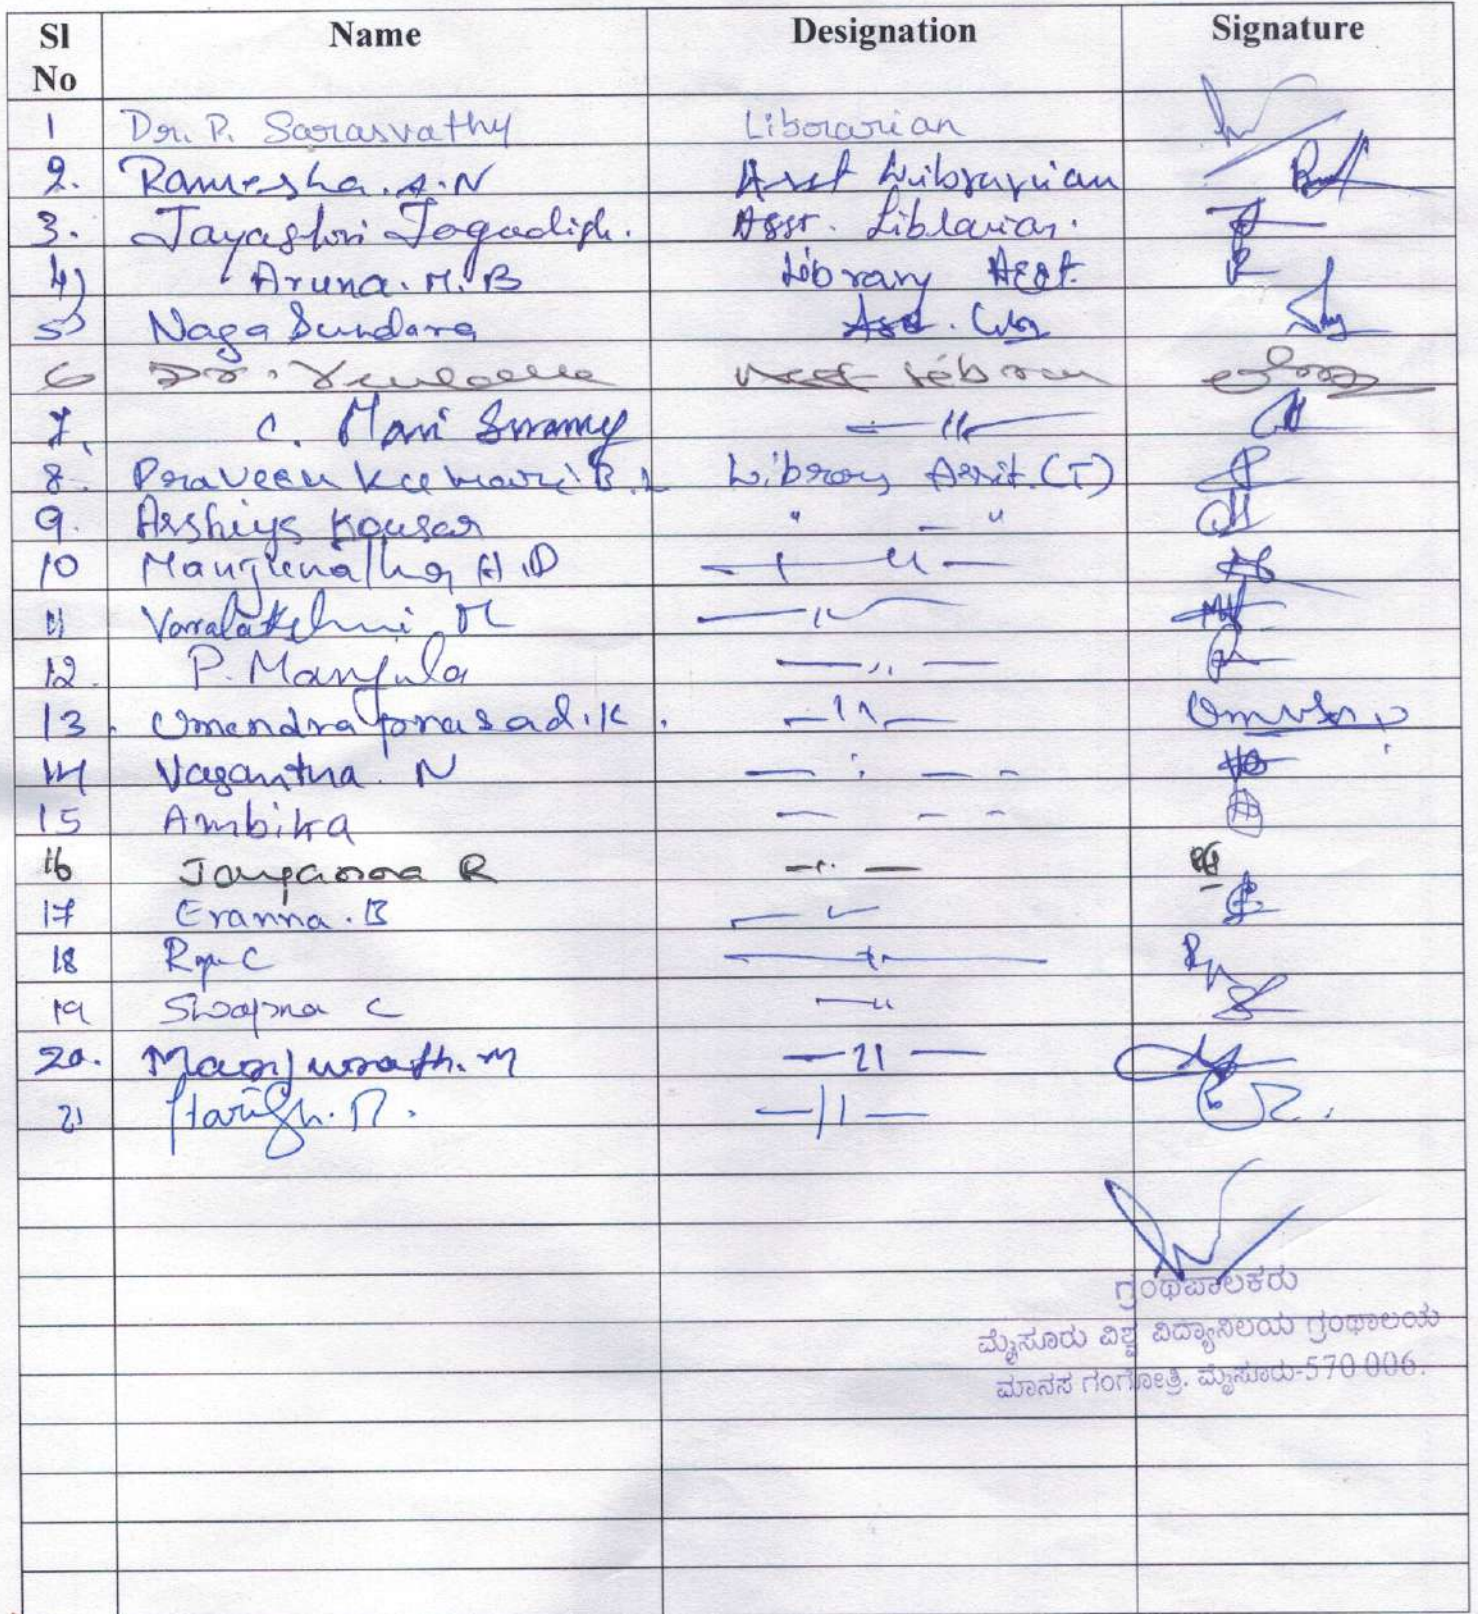 Sl No Name Designation Signature
1 Dr. P. Sarasvathy Librarian
2. Ramesha. A. N Asst Librarian
3. Jayashri Jagadish. Asst. Librarian.
4) Aruna. M. B Library Asst.
5) Naga Sundara Asst. Lib
6 Dr. Asst Libran
7. C. Mari Swamy — 11 —
8. Praveen Kumari B. L Library Assit. (T)
9. Arshiya Kousar " — "
10 Manjunatha H. D — 11 —
11 Varalakshmi M — 11 —
12. P. Manjula — 11 —
13. Umendra prasad. K. — 11 —
14 Vasantha. N — : — -
15 Ambika — — -
16 R — 11 —
17 Eranna. B — 11
18 C — 11 —
19 Swapna C — 11
20. Manjunath. M — 21 —
21 Harish. R. — 11 —
ಗ್ರಂಥಪಾಲಕರು
ಮೈಸೂರು ವಿಶ್ವ ವಿದ್ಯಾನಿಲಯ ಗ್ರಂಥಾಲಯ
ಮಾನಸ ಗಂಗೋತ್ರಿ. ಮೈಸೂರು-570 006.